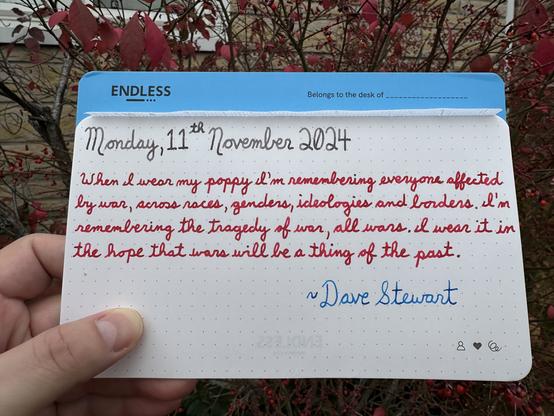 ENDLESS
Belongs to the desk of
Monday, 11th November 2024
When I wear my poppy I'm remembering everyone affected
by war, across races, genders, ideologies and borders. I'm
remembering the tragedy of war, all wars. I wear it in
the hope that wars will be a thing of the past.
~Dave Stewart
ENDLESS